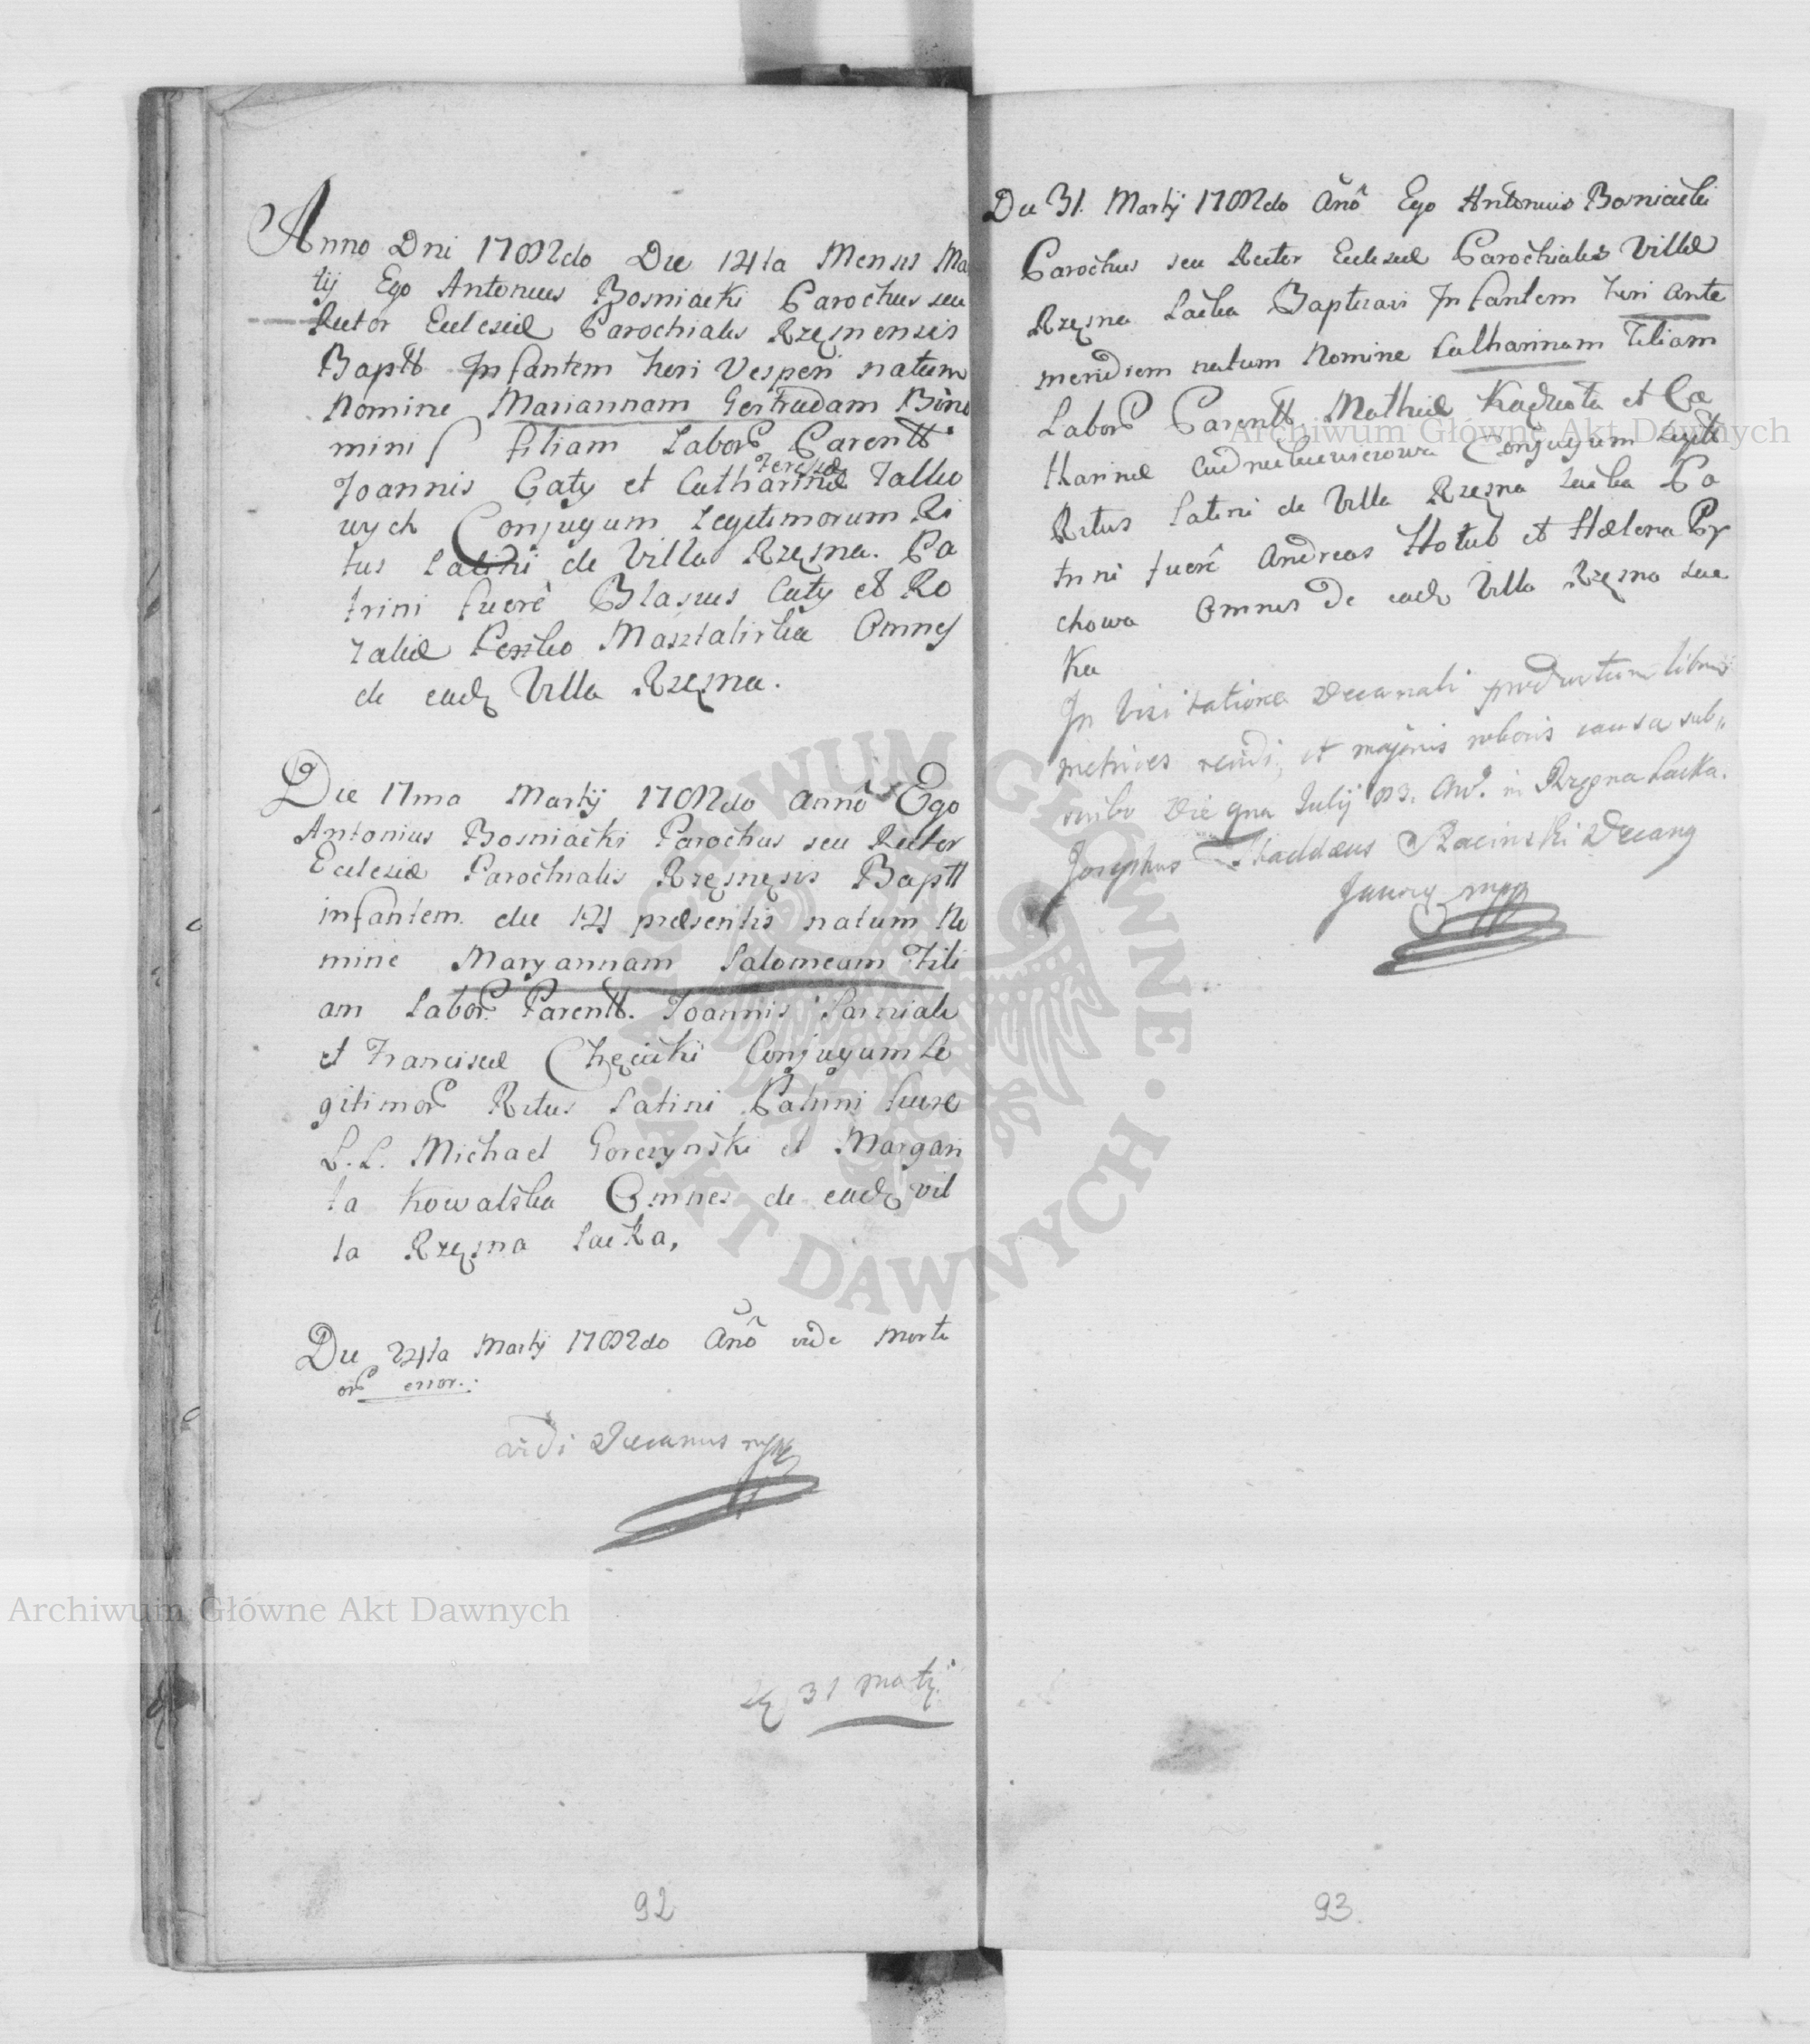 Anno Dni 1782do Die 14ta Mensis Mar
tij Ego Antonius Bosniacki Parochus seu
Rector Eclesiæ Parochialis Rzęsnensis
Baptt Infantem heri Vesperi natum
Nomine Mariannam Gertrudam Bino
mini filiam Labor Parentt
Joannis Gaty et Catharinæ Teresiæ
wych Conjugum Legitimorum Ri
tus Latini de Villa Rzęsna. Pa
trini fuerê Blasius Caty et Ro
zaliæ Masztalirka Omnes
de eadę Villa Rzęsna.
Die 17ma Martij 1782do Annô Ego
Antonius Bosniacki Parochus seu Rector
Eclesiæ Parochialis Rzęsnęsis Baptt
infantem die 14 præsentis natum No
mine Maryannam Salomeam Fili
am Labor Parentt. Joannis
et Franciscæ Conjugum Le
gitimor Ritus Latini Patrini fuere
L. L. Michael Gorczynski et Margari
ta Kowalska Omnes de eadę Vil
la Rzęsna Lacka,
Die 24ta Martij 1782do Anô vide Mortu
or error.
vidi Decanus mpp
31 Matij
92
Die 31. Martij 1782do Anô Ego Antonius Bosniacki
Parochus seu Rector Eclesiæ Parochialis Villæ
Rzęsna Lacka Baptizavi Infantem heri ante
meridiem natum Nomine Catharinam Filiam
Labor Parentt Mathiæ et Ca
tharinæ Conjugum Legitt
Ritus Latini de Villa Rzęsna Lacka Pa
trini fuerê Andreas Hotub et Hælena Py
chowa Omnes de eadę Villa Rzęsna Lac
Ka
In Visitatione Decanali productum librum
metrices vidi, et majoris roboris causa sub„
scribo Die 9na Julij 783. An. in Rzęsna Lacka.
Josephus Thaddæus Racinski Decang
mpp
93
Archiwum Główne Akt Dawnych
Archiwum Główne Akt Dawnych
ARCHIWUM GŁÓWNE · AKT DAWNYCH ·